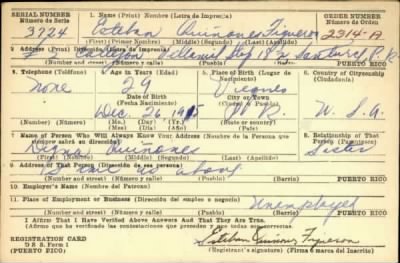 SERIAL NUMBER
Número de Serie
1. Name (Print) Nombre (Letra de Imprenta)
ORDER NUMBER
Número de Orden
3724 Esteban Quiñones Figueroa 2314-A
(First) (Primer Nombre) (Middle) (Segundo) (Last) (Apellido)
2. Address (Print) Dirección (Letra de Imprenta)
Stop 18½ Santurce P.R.
(Number and street) (Número y calle) (Town) (Pueblo) (Barrio) PUERTO RICO
3. Telephone (Teléfono) 4. Age in Years (Edad) 5. Place of Birth (Lugar de Nacimiento) 6. Country of Citizenship (Ciudadanía)
None 29 Vieques
Date of Birth
(Fecha Nacimiento)
City or Town
Dec. 26 1915 P.R. U.S.A.
(Number) (Número) (Mo.) (Day) (Yr.)
(Mes) (Día) (Año)
State or country
PUERTO RICO
7. Name of Person Who Will Always Know Your Address (Nombre de la Persona que siempre sabrá su dirección) 8. Relationship of That Person
Quiñones Sister
(First) (Primer Nombre) (Middle) (Segundo) (Last) (Apellido)
9. Address of That Person (Dirección de esa persona)
Same as above
(Number and street) (Número y calle) (Town) (Pueblo) (Barrio) PUERTO RICO
10. Employer's Name (Nombre del Patrono)
11. Place of Employment or Business (Dirección del empleo o negocio)
Unemployed
(Number and street) (Número y calle) (Town) (Pueblo) (Barrio) PUERTO RICO
I Affirm That I Have Verified Above Answers And That They Are True.
(Afirmo que he verificado las contestaciones que preceden y que todas son correctas)
REGISTRATION CARD
D S S. Form 1
(PUERTO RICO)
Esteban Quiñones Figueroa
(Registrant's signature) (Firma del Inscrito)